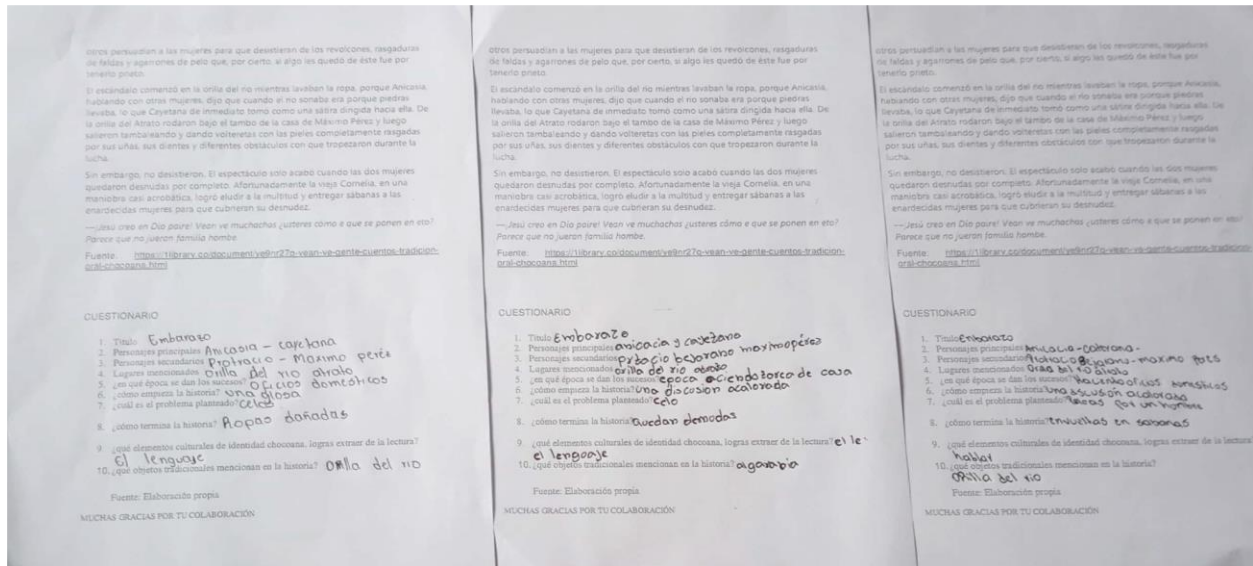 otros persuadían a las mujeres para que desistieran de los revolcones, rasgaduras
de faldas y agarrones de pelo que, por cierto, si algo les quedó de éste fue por
tenerlo prieto.
El escándalo comenzó en la orilla del río mientras lavaban la ropa, porque Anicasia,
hablando con otras mujeres, dijo que cuando el río sonaba era porque piedras
llevaba, lo que Cayetana de inmediato tomó como una sátira dirigida hacia ella. De
la orilla del Atrato rodaron bajo el tambo de la casa de Máximo Pérez y luego
salieron tambaleando y dando volteretas con las pieles completamente rasgadas
por sus uñas, sus dientes y diferentes obstáculos con que tropezaron durante la
lucha.
Sin embargo, no desistieron. El espectáculo solo acabó cuando las dos mujeres
quedaron desnudas por completo. Afortunadamente la vieja Cornelia, en una
maniobra casi acrobática, logró eludir a la multitud y entregar sábanas a las
enardecidas mujeres para que cubrieran su desnudez.
—¡Jesú creo en Dio paire! Vean ve muchachas ¿usteres cómo e que se ponen en eto?
Parece que no jueron familia hombe.
Fuente: https://1library.co/document/ye9nr27o-vean-ve-gente-cuentos-tradicion-
oral-chocoana.html
CUESTIONARIO
1. Titulo Embarazo
2. Personajes principales Anicasia - cayetana
3. Personajes secundarios Protracio - Maximo peres
4. Lugares mencionados Orilla del rio atrato
5. ¿en qué época se dan los sucesos? Oficios domesticos
6. ¿cómo empieza la historia? una glosa
7. ¿cuál es el problema planteado? Celos
8. ¿cómo termina la historia? Ropas dañadas
9. ¿qué elementos culturales de identidad chocoana, logras extraer de la lectura?
El lenguaje
10. ¿qué objetos tradicionales mencionan en la historia? Orilla del rio
Fuente: Elaboración propia
MUCHAS GRACIAS POR TU COLABORACIÓN
otros persuadían a las mujeres para que desistieran de los revolcones, rasgaduras
de faldas y agarrones de pelo que, por cierto, si algo les quedó de éste fue por
tenerlo prieto.
El escándalo comenzó en la orilla del río mientras lavaban la ropa, porque Anicasia,
hablando con otras mujeres, dijo que cuando el río sonaba era porque piedras
llevaba, lo que Cayetana de inmediato tomó como una sátira dirigida hacia ella. De
la orilla del Atrato rodaron bajo el tambo de la casa de Máximo Pérez y luego
salieron tambaleando y dando volteretas con las pieles completamente rasgadas
por sus uñas, sus dientes y diferentes obstáculos con que tropezaron durante la
lucha.
Sin embargo, no desistieron. El espectáculo solo acabó cuando las dos mujeres
quedaron desnudas por completo. Afortunadamente la vieja Cornelia, en una
maniobra casi acrobática, logró eludir a la multitud y entregar sábanas a las
enardecidas mujeres para que cubrieran su desnudez.
—¡Jesú creo en Dio paire! Vean ve muchachas ¿usteres cómo e que se ponen en eto?
Parece que no jueron familia hombe.
Fuente: https://1library.co/document/ye9nr27o-vean-ve-gente-cuentos-tradicion-
oral-chocoana.html
CUESTIONARIO
1. Titulo Embarazo
2. Personajes principales anicacia y cayetano
3. Personajes secundarios protacio bejarano maximo pérez
4. Lugares mencionados orilla del rio atrato
5. ¿en qué época se dan los sucesos? epoca aciendo torea de casa
6. ¿cómo empieza la historia? Una discusion acalorada
7. ¿cuál es el problema planteado? Celo
8. ¿cómo termina la historia? quedan demodas
9. ¿qué elementos culturales de identidad chocoana, logras extraer de la lectura? el le-
el lengoaje
10. ¿qué objetos tradicionales mencionan en la historia? algarabia
Fuente: Elaboración propia
MUCHAS GRACIAS POR TU COLABORACIÓN
otros persuadían a las mujeres para que desistieran de los revolcones, rasgaduras
de faldas y agarrones de pelo que, por cierto, si algo les quedó de éste fue por
tenerlo prieto.
El escándalo comenzó en la orilla del río mientras lavaban la ropa, porque Anicasia,
hablando con otras mujeres, dijo que cuando el río sonaba era porque piedras
llevaba, lo que Cayetana de inmediato tomó como una sátira dirigida hacia ella. De
la orilla del Atrato rodaron bajo el tambo de la casa de Máximo Pérez y luego
salieron tambaleando y dando volteretas con las pieles completamente rasgadas
por sus uñas, sus dientes y diferentes obstáculos con que tropezaron durante la
lucha.
Sin embargo, no desistieron. El espectáculo solo acabó cuando las dos mujeres
quedaron desnudas por completo. Afortunadamente la vieja Cornelia, en una
maniobra casi acrobática, logró eludir a la multitud y entregar sábanas a las
enardecidas mujeres para que cubrieran su desnudez.
—¡Jesú creo en Dio paire! Vean ve muchachas ¿usteres cómo e que se ponen en eto?
Parece que no jueron familia hombe.
Fuente: https://1library.co/document/ye9nr27o-vean-ve-gente-cuentos-tradicion-
oral-chocoana.html
CUESTIONARIO
1. Titulo Embarazo
2. Personajes principales
3. Personajes secundarios maximo
4. Lugares mencionados del rio atrato
5. ¿en qué época se dan los sucesos?
6. ¿cómo empieza la historia? Una
7. ¿cuál es el problema planteado? por un hombre
8. ¿cómo termina la historia? Envueltas en sabanas
9. ¿qué elementos culturales de identidad chocoana, logras extraer de la lectura
hablar
10. ¿qué objetos tradicionales mencionan en la historia?
Orilla del rio
Fuente: Elaboración propia
MUCHAS GRACIAS POR TU COLABORACIÓN